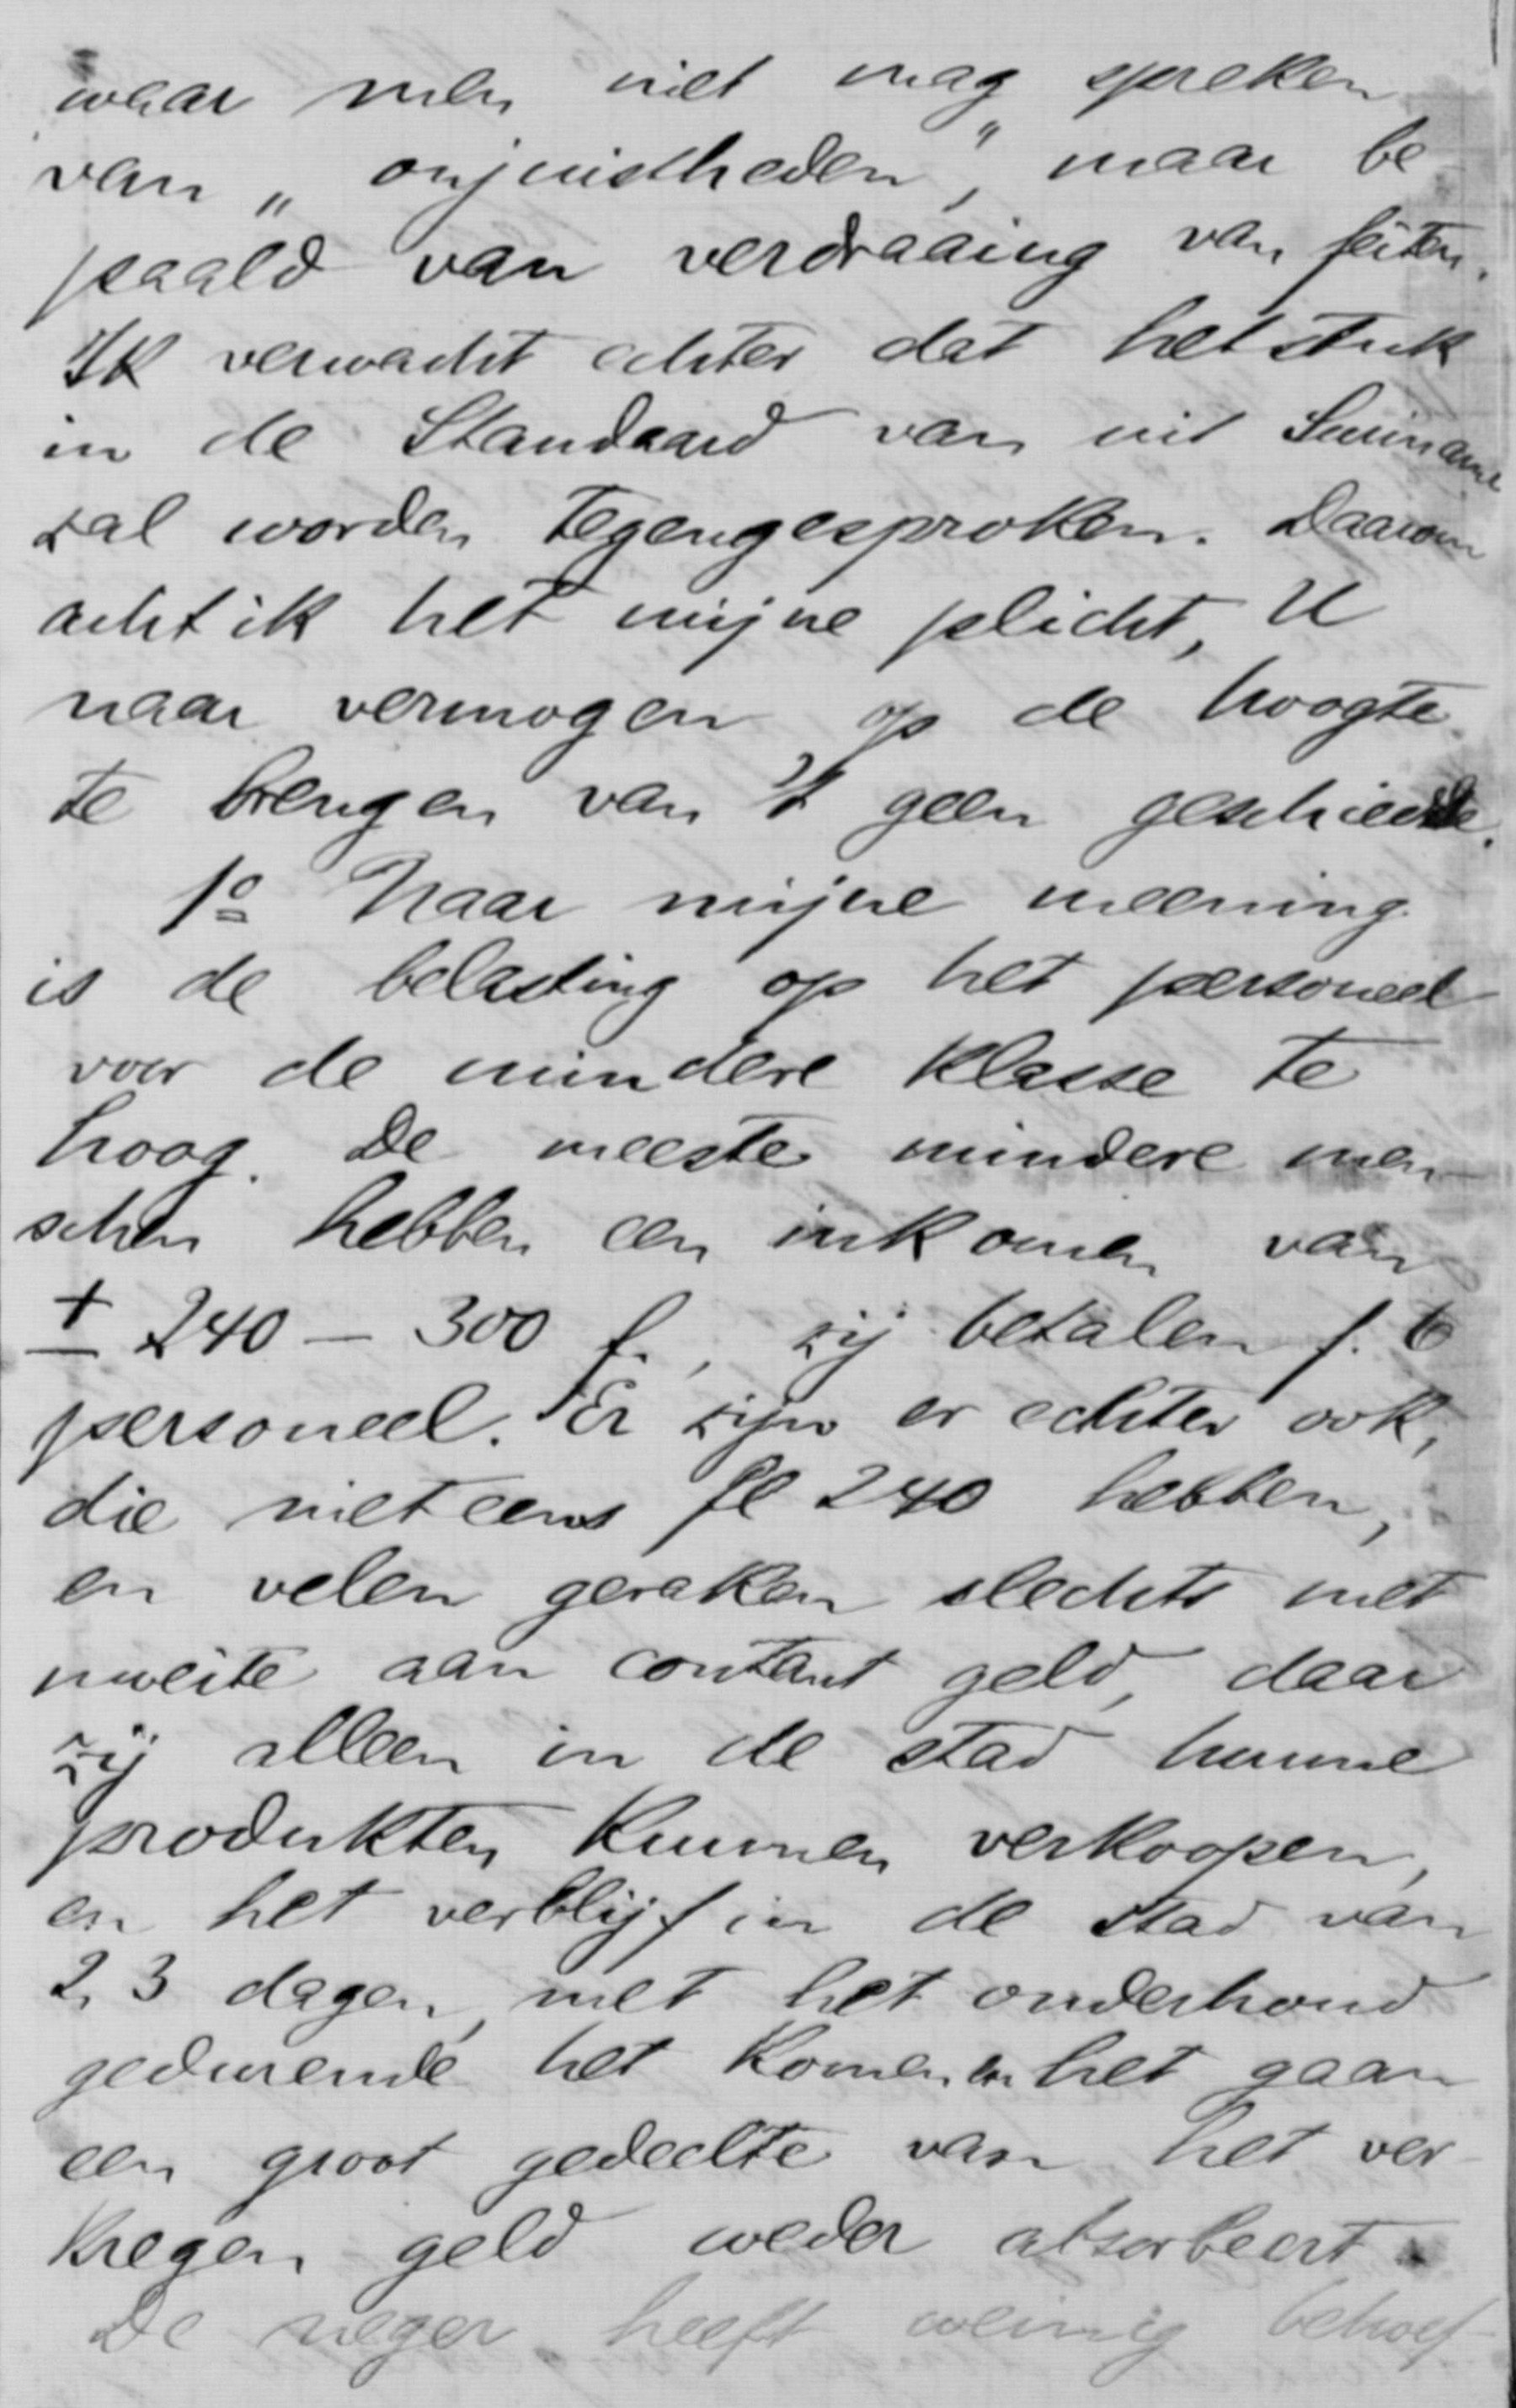 waar men niet mag spreken
van „onjuistheden", maar be
paald van verdraaing van feiten.
Ik verwacht echter dat het stuk
in de Standaard van uit Suriname
zal worden tegengesproken. Daarom
acht ik het mijne plicht, U
naar vermogen op de hoogte
te brengen van 't geen geschiedde.
1o Naar mijne meening
is de belasting op het personeel
voor de mindere klasse te
hoog. De meeste mindere men-
schen hebben een inkomen van
± 240 – 300 f., zij betalen f. 6
personeel. Er zijn er echter ook,
die niet eens fl 240 hebben,
en velen geraken slechts met
moeite aan contant geld, daar
zij alleen in de stad hunne
produkten kunnen verkoopen,
en het verblijf in de stad van
2, 3 dagen, met het onderhoud
gedurende het komen en het gaan
een groot gedeelte van het ver-
kregen geld weder absorbeert.
De neger heeft weinig behoef-